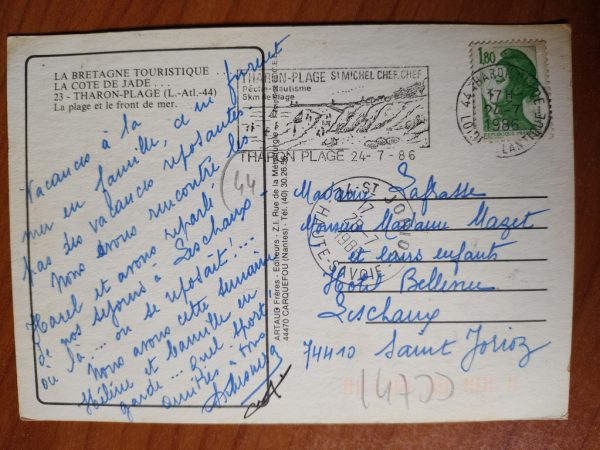 LA BRETAGNE TOURISTIQUE
LA COTE DE JADE...
23 - THARON-PLAGE (L.-Atl.-44)
La plage et le front de mer.
Vacances à la
mer en famille, ce ne furent
pas des vacances reposantes.
Nous avons rencontré les
Harel et avons reparlé
de nos séjours à Leschaux
où là... on se reposait!...
Nous avons cette semaine
Hélène et Camille en
garde... Quel sport!
amitiés à tous
44
ARTAUD Frères - Editeurs - Z.I. Rue de la Métallurgie
44470 CARQUEFOU (Nantes) - Tél. (40) 30.26.
THARON-PLAGE ST MICHEL CHEF, CHEF
Pêche-Nautisme
5km de Plage
THARON PLAGE 24-7-86
1,80
44 THARON PLAGE
17H
24-7
1986
LOIRE ATLANTIQUE
74 ST JORIOZ
17
-7
HAUTE-SAVOIE
Madame Lafasse
Monsieur Madame Mazet
et leurs enfants
Hôtel Bellevue
Leschaux
74410 Saint Jorioz